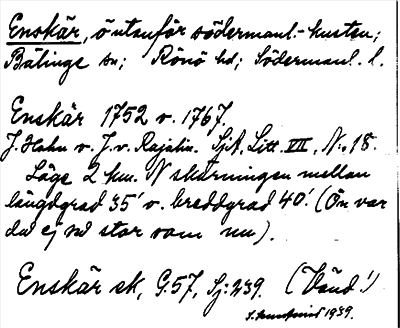 Enskär, ö utanför södermanl.-kusten;
Bälinge sn; Rönö hd; Södermanl. l.
Enskär 1752 v. 1767.
J. Hahn v. J. v. Rajalin. SjA, Litt. VII, N:o 18.
Läge 2 km. N skärningen mellan
längdgrad 35' v. breddgrad 40'. (Ön var
då ej så stor som nu).
Enskär sk, G:57, Sj:239. (Vänd!)
1939.